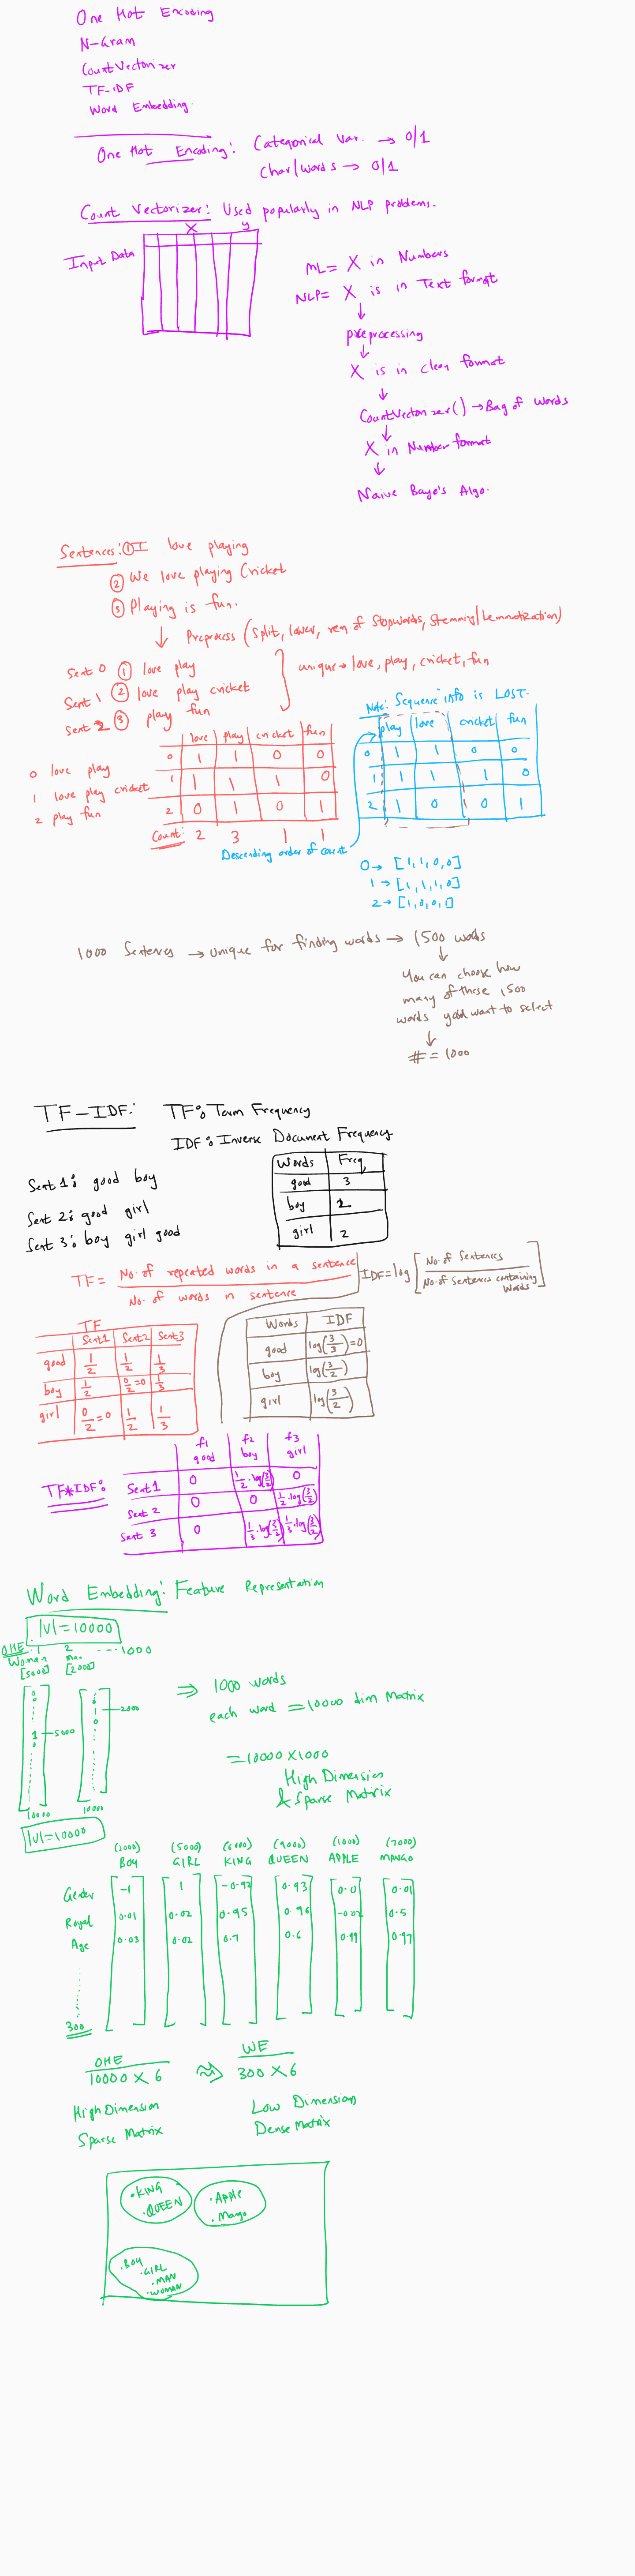 One Hot Encoding
N-Gram
CountVectorizer
TF-IDF
Word Embedding.
One Hot Encoding: Categorical Var. → 0/1
Char/Words → 0/1
Count Vectorizer: Used popularly in NLP problems.
X y
Input Data
ML = X in Numbers
NLP = X is in Text format
↓
preprocessing
↓
X is in clean format
↓
CountVectorizer() → Bag of Words
↓
X in Number format
↓
Naive Baye's Algo.
Sentences: ① I love playing
② We love playing Cricket
③ Playing is fun.
↓ Preprocess (Split, lower, rem of Stopwords, Stemming/Lemmatization)
Sent 0 ① love play
Sent 1 ② love play cricket
Sent 2 ③ play fun
unique → love, play, cricket, fun
Note: Sequence info is LOST.
love play cricket fun
0 1 1 0 0
1 1 1 1 0
2 0 1 0 1
Count: 2 3 1 1
0 love play
1 love play cricket
2 play fun
play love cricket fun
0 1 1 0 0
1 1 1 1 0
2 1 0 0 1
Descending order of count
0 → [1,1,0,0]
1 → [1,1,1,0]
2 → [1,0,0,1]
1000 Sentences → unique for finding words → 1500 words
↓
You can choose how
many of these 1500
words you want to select
↓
# = 1000
TF-IDF: TF: Term Frequency
IDF: Inverse Document Frequency
Sent 1: good boy
Sent 2: good girl
Sent 3: boy girl good
Words Freq
good 3
boy 2
girl 2
TF = No. of repeated words in a sentence / No. of words in sentence
IDF = log [No. of Sentences / No. of Sentences containing words]
TF
Sent1 Sent2 Sent3
good 1/2 1/2 1/3
boy 1/2 0/2=0 1/3
girl 0/2=0 1/2 1/3
Words IDF
good log(3/3)=0
boy log(3/2)
girl log(3/2)
TF*IDF:
f1 f2 f3
good boy girl
Sent1 0 1/2·log(3/2) 0
Sent 2 0 0 1/2·log(3/2)
Sent 3 0 1/3·log(3/2) 1/3·log(3/2)
Word Embedding: Feature Representation
|V|=10000
OHE 1 2 ---1000
Woman Man
[5000] [2000]
0
0
1 -5000
0
10000
0
1 -2000
0
10000
⇒ 1000 words
each word = 10000 dim Matrix
= 10000 X 1000
High Dimension
& Sparse Matrix
|V|=10000
(2000) (5000) (6000) (9000) (1000) (7000)
BOY GIRL KING QUEEN APPLE MANGO
Gender -1 1 -0.92 0.93 0.0 0.01
Royal 0.01 0.02 0.95 0.96 -0.02 0.5
Age 0.03 0.02 0.7 0.6 0.99 0.97
300
OHE WE
10000 X 6 ⇒ 300 X 6
High Dimension Low Dimension
Sparse Matrix Dense Matrix
.KING
.QUEEN
.Apple
.Mango
.BOY
.GIRL
.MAN
.WOMAN